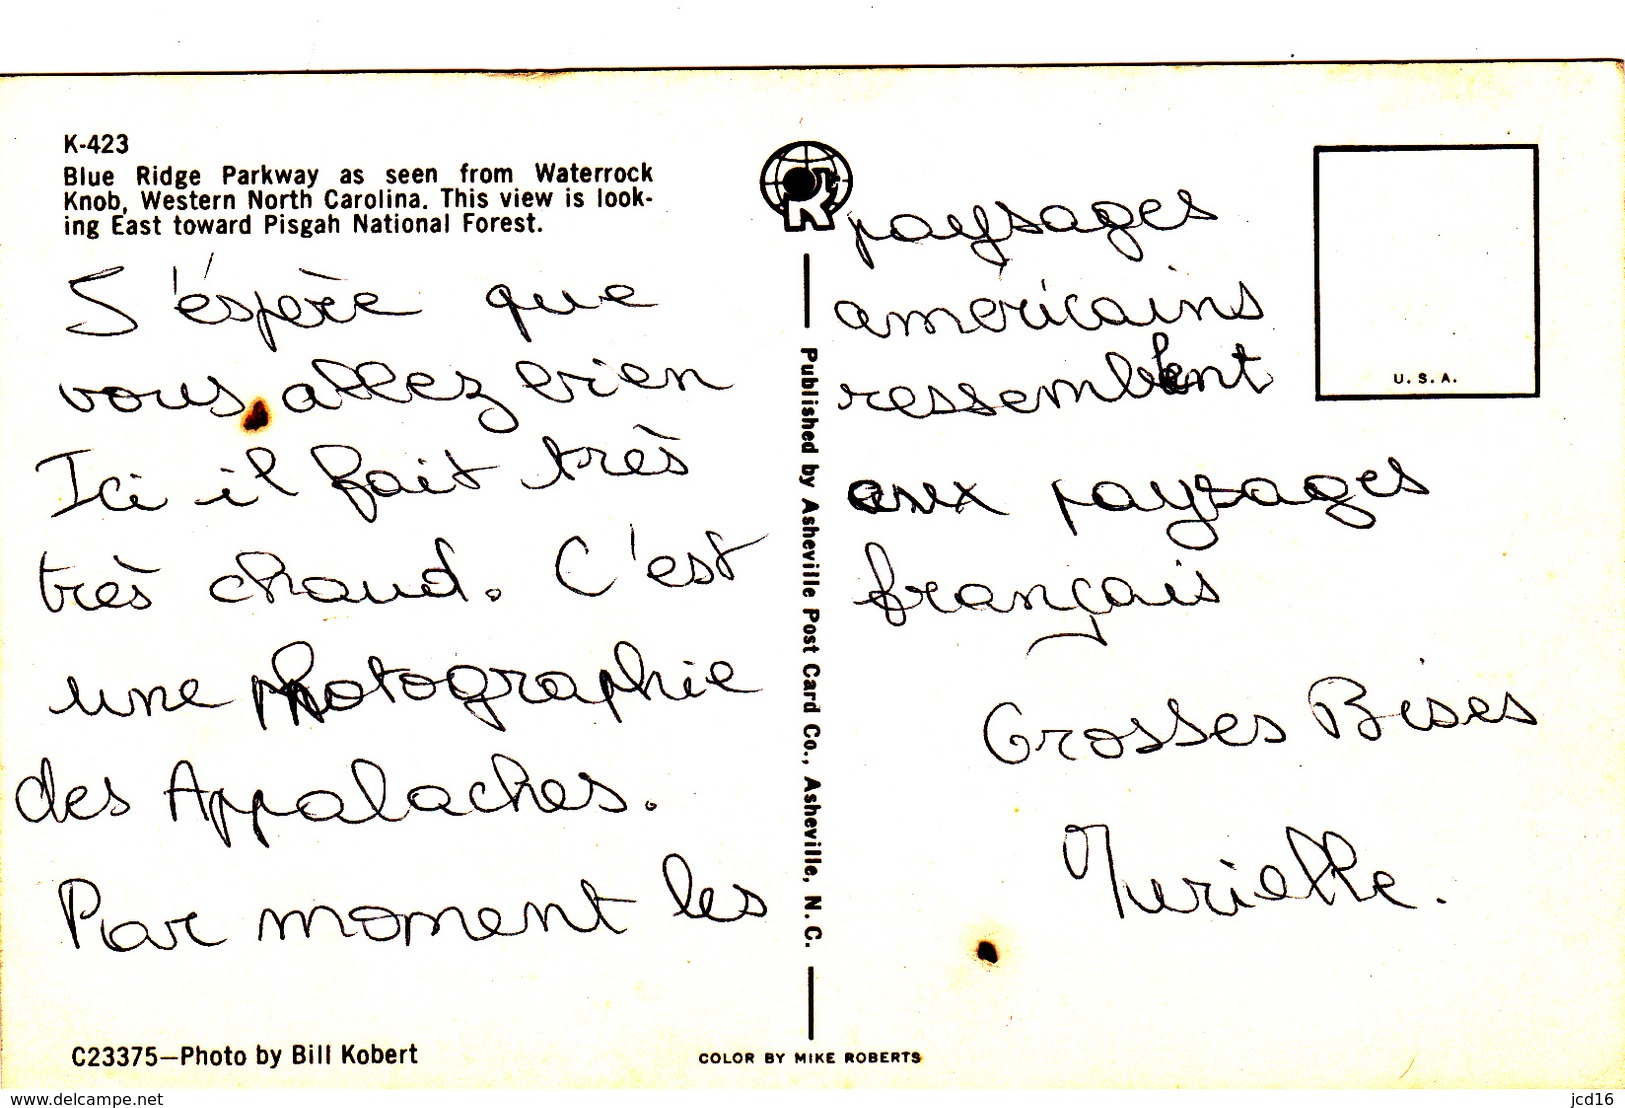 K-423
Blue Ridge Parkway as seen from Waterrock
Knob, Western North Carolina. This view is look-
ing East toward Pisgah National Forest.
J'éspère que
vous allez bien
Ici il fait très
très chaud. C'est
une photographie
des Appalaches.
Par moment les
C23375—Photo by Bill Kobert
Published by Asheville Post Card Co., Asheville, N. C.
COLOR BY MIKE ROBERTS
paysages
américains
ressemblent
aux paysages
français
Grosses Bises
Murielle.
U. S. A.
www.delcampe.net
jcd16